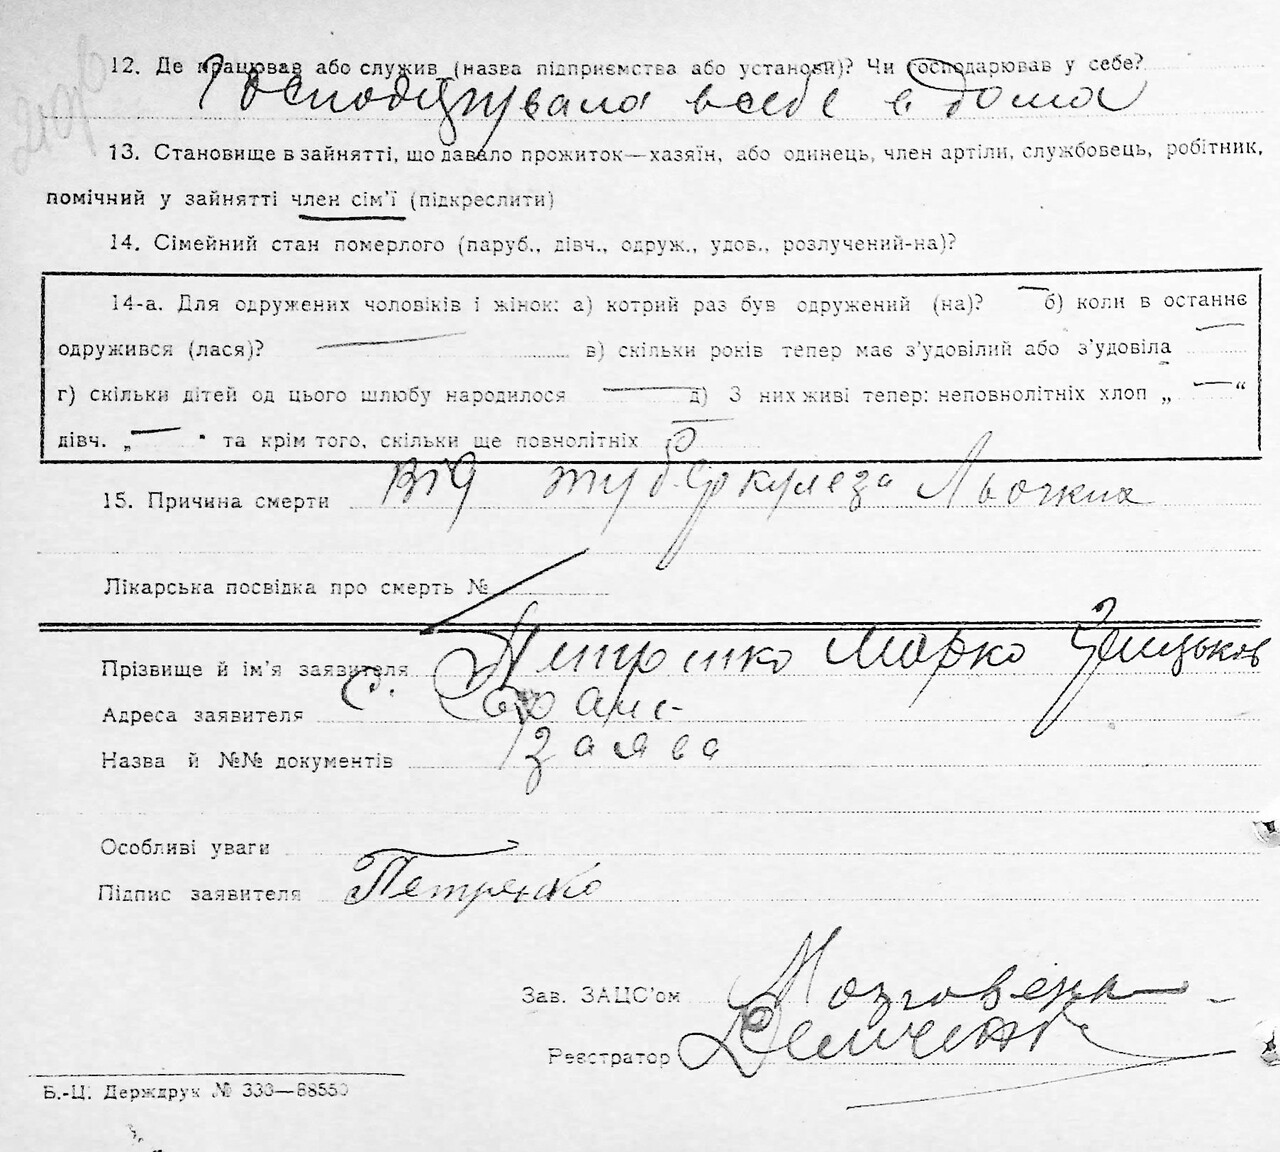 12. Де працював або служив (назва підприємства або установи)? Чи господарював у себе?
Господарювала в себе в дома
13. Становище в зайнятті, що давало прожиток—хазяїн, або одинець, член артіли, службовець, робітник,
помічний у зайнятті член сім'ї (підкреслити)
14. Сімейний стан померлого (паруб., дівч., одруж., удов., розлучений-на)?
14-а. Для одружених чоловіків і жінок: а) котрий раз був одружений (на)? — б) коли в останнє
одружився (лася)? — в) скільки років тепер має з'удовілий або з'удовіла —
г) скільки дітей од цього шлюбу народилося — д) З них живі тепер: неповнолітніх хлоп „ — “
дівч. „ — " та крім того, скільки ще повнолітніх
15. Причина смерти від туберкулеза Льогких
Лікарська посвідка про смерть №
Прізвище й ім'я заявителя Петренко Марко
Адреса заявителя с.
Назва й №№ документів заява
Особливі уваги —
Підпис заявителя Петренко
Зав. ЗАЦС'ом
Реєстратор Демченко
Б.-Ц. Держдрук № 333—88550